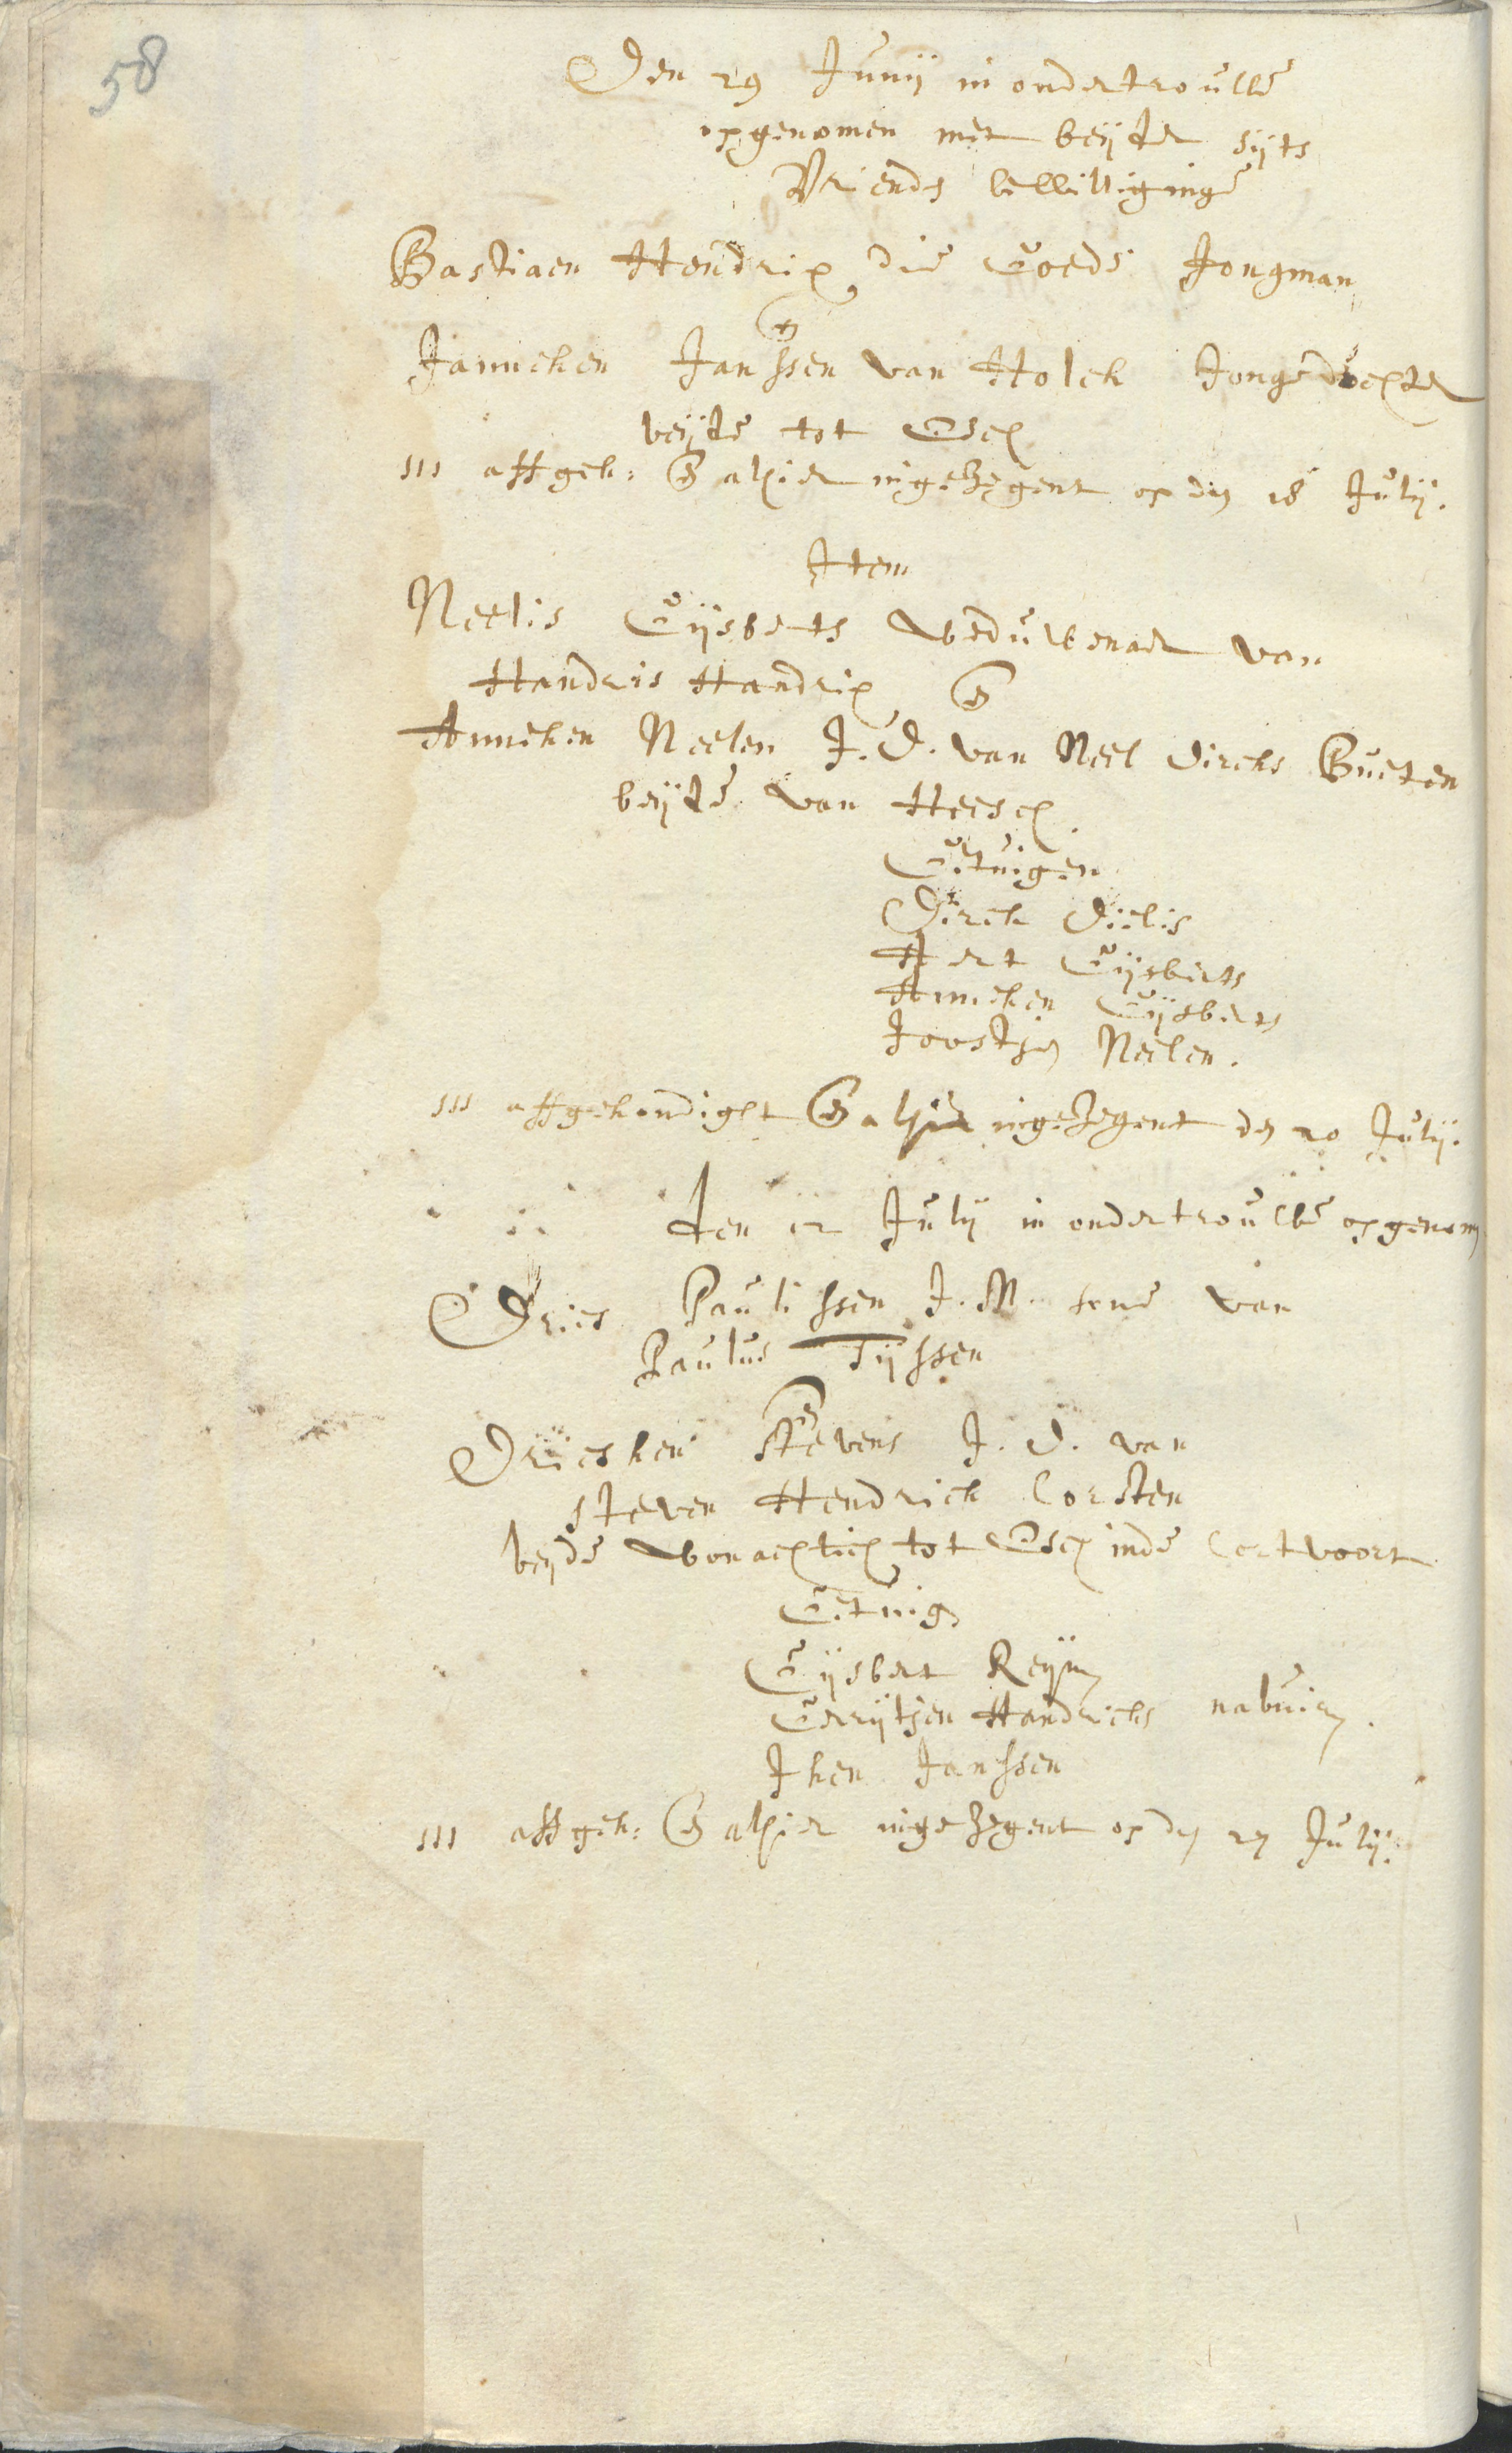 58
Den 29 Junij in ondertrouwe
opgenomen met beijder sijts
Vriends bewilliginge
Bastiaen Hendrix die Goede Jongman
en
Janneken Janssen van Holck Jongedochter
beijde tot Esch
111 affgek: En alhier ingezegent op den 18 Julij.
Item
Neelis Gijsberts Weduwenaer van
Handris Handrix En
Anneken Neelen J. D. van Neel Dircks Bueten
beijde van Heesch
Getuigen
Dirck Dielis
Aert Gijsberts
Anneken Gijsberts
Joostjen Neelen.
111 affgekondight En alhier ingezegent den 20 Julij.
den 12 Julij in ondertrouwe opgenomen
Dries Paulissen J. M. sone van
Paulus Tijssen
En
Driesken Stevens J. D. van
Steven Hendrick Corsten
beijde Wonachtich tot Esch inde Cortvoort
Getuigen
Gijsbert Reijnen
Gerritjen Handricks nabuiren.
Iken Janssen
111 affgek: En alhier ingezegent op den 27 Julij.